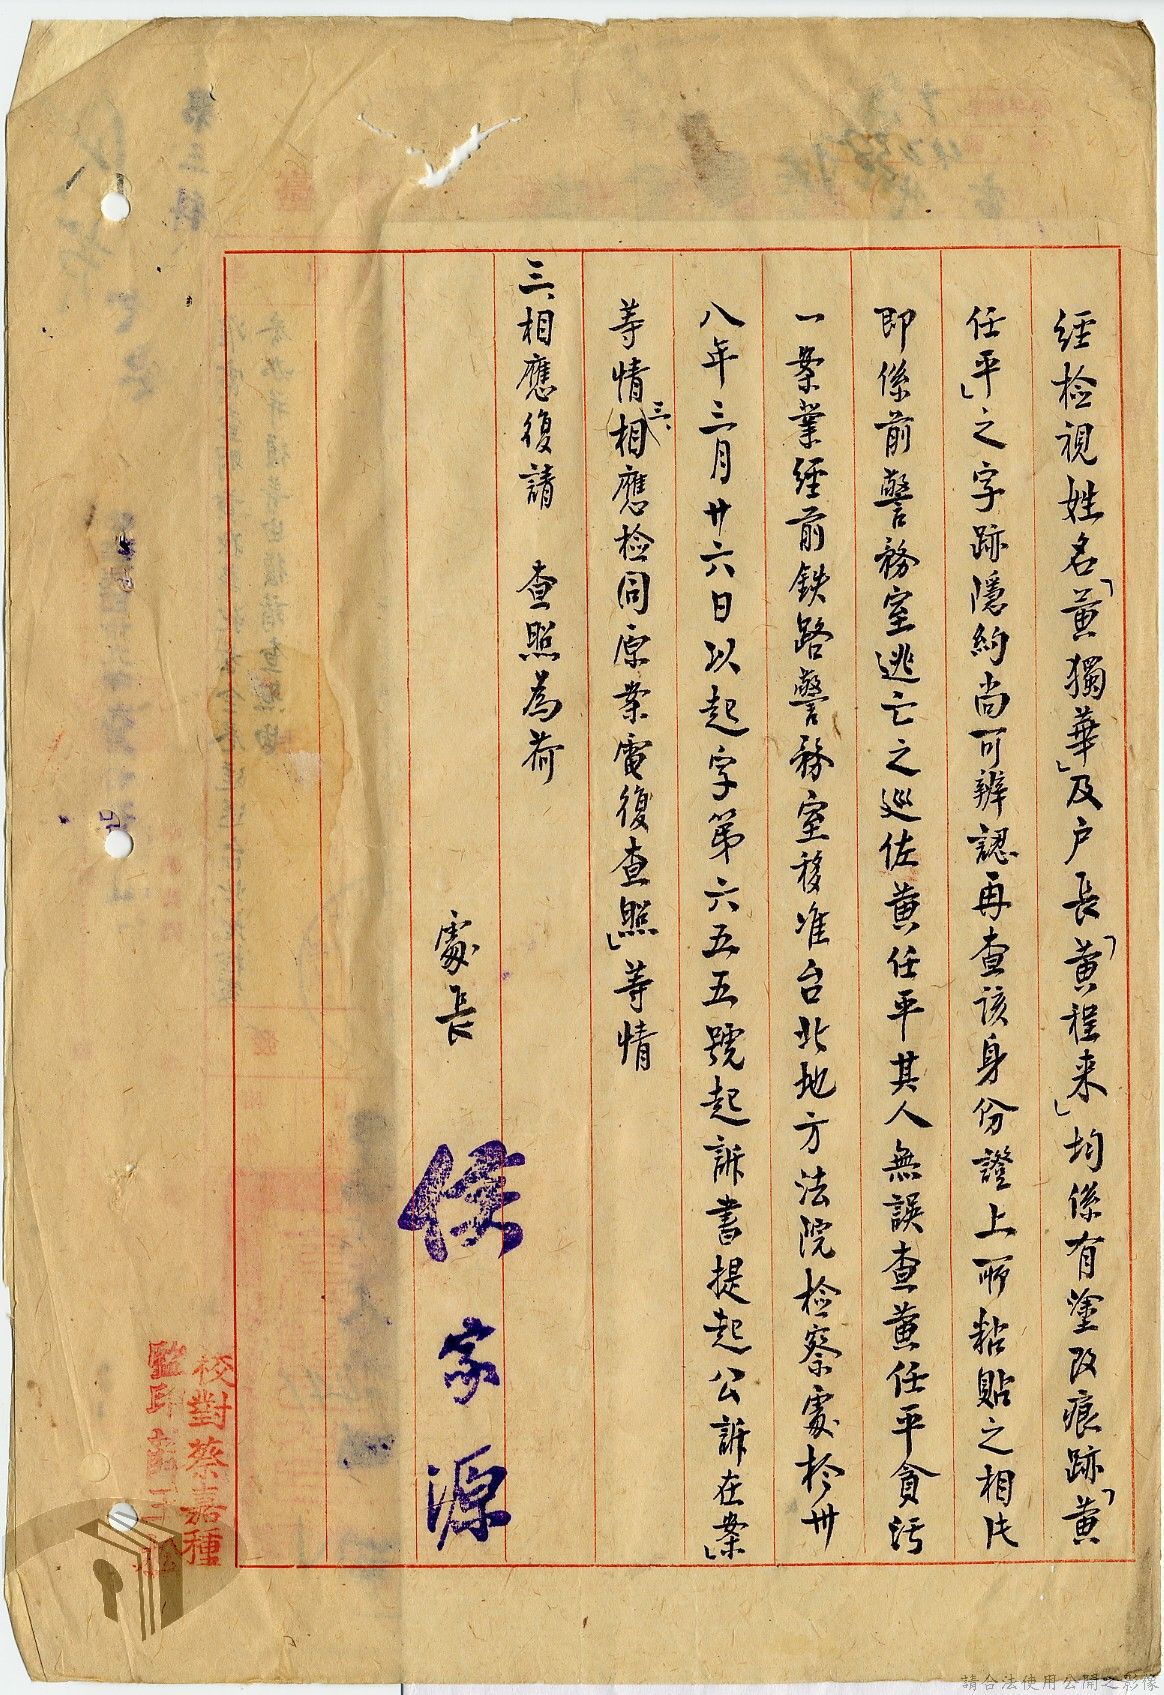 經檢視姓名「黃獨華」及户長「黃程来」均係有塗改痕跡「黃
任平」之字跡隱約尚可辨認再查該身份證上所粘貼之相片
即係前警務室逃亡之巡佐黃任平其人無誤查黃任平貪污
一案業經前鉄路警務室移准台北地方法院檢察處於卅
八年三月廿六日以起字第六五五號起訴書提起公訴在案」
等情(三、相應檢同原案電復查照」等情
三、相應復請　查照為荷
處長　侯家源
校對蔡嘉種
監印
第三科
請合法使用公開之影像